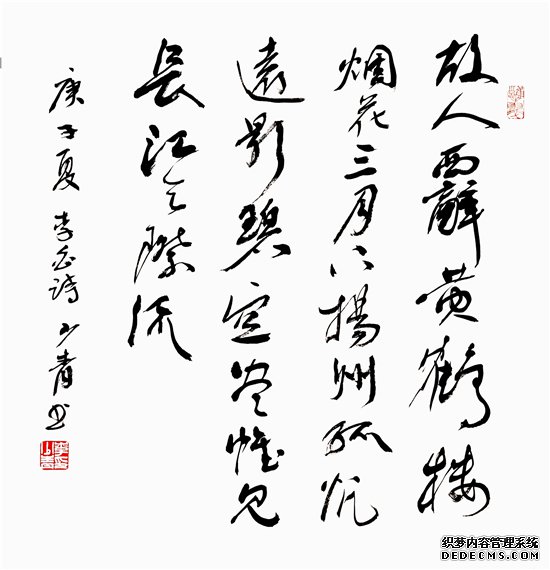 故人西辭黄鶴楼
烟花三月下揚州孤帆
遠影碧空尽惟见
長江天際流
庚子夏 李白詩 青书
织梦内容管理系统
DEDECMS.COM